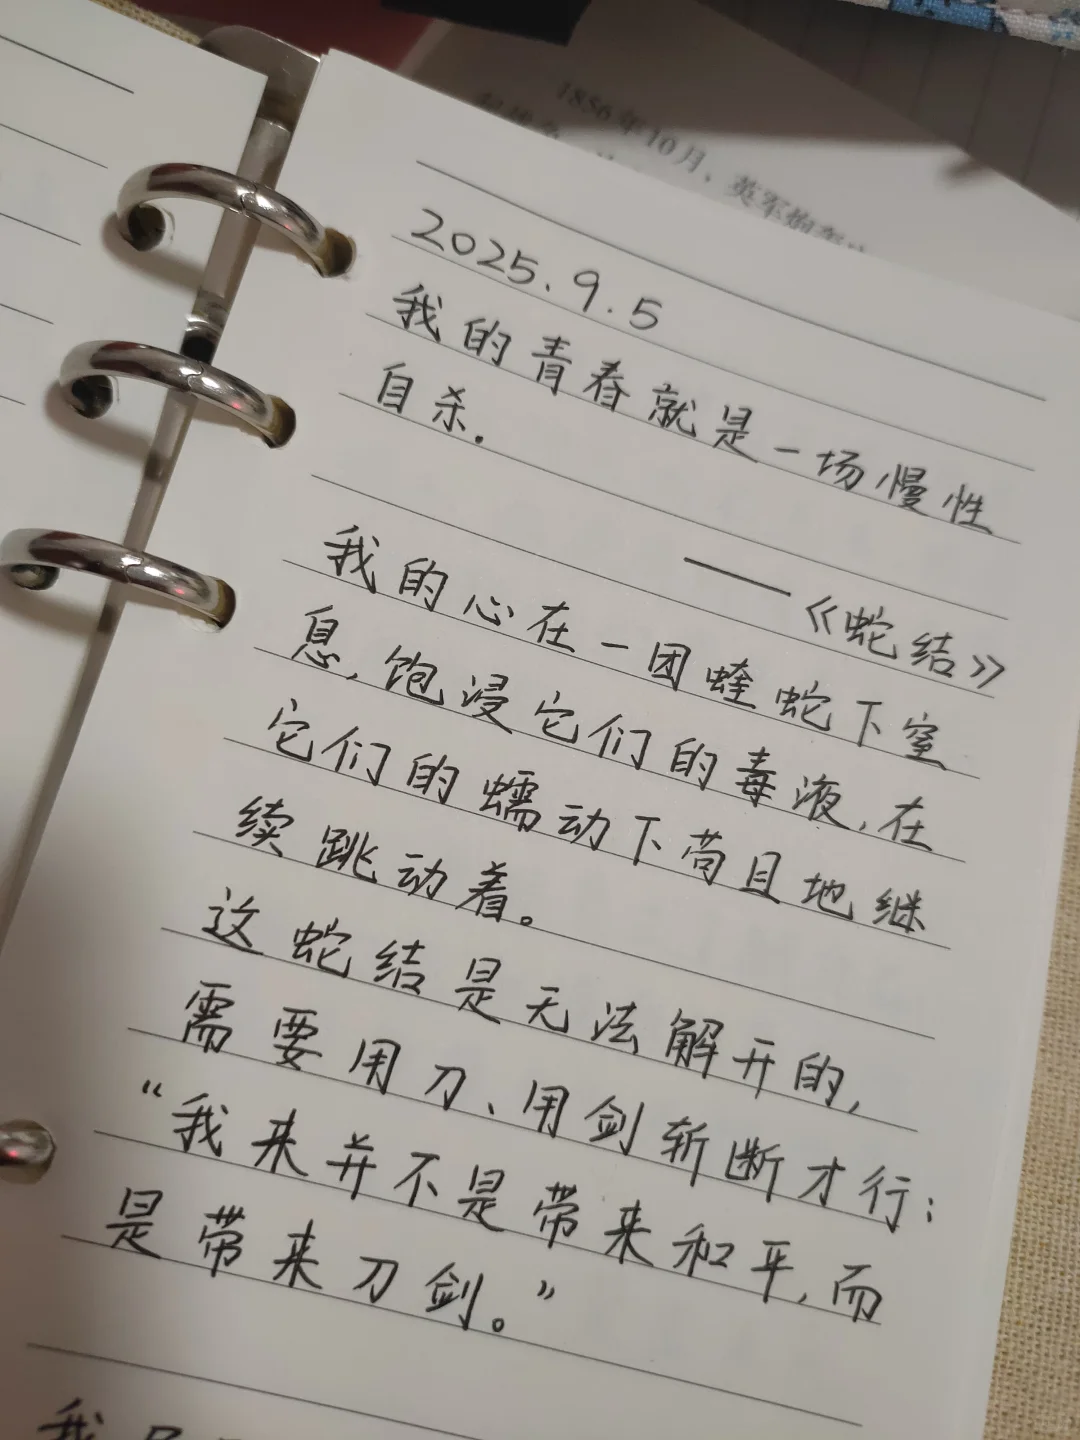 1856年10月，英军炮轰
2025.9.5
我的青春就是一场慢性
自杀.
——《蛇结》
我的心在一团蝰蛇下窒
息,饱浸它们的毒液,在
它们的蠕动下苟且地继
续跳动着。
这蛇结是无法解开的,
需要用刀、用剑斩断才行:
“我来并不是带来和平,而
是带来刀剑。”
我